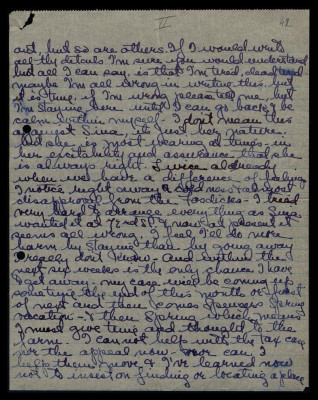 II
48
out, but so are others. If I would write
all the details I'm sure you would understand
but all I can say, is that I'm tired, dead tired
maybe I'm all wrong in writing this, but
it is time, if I'm wrong pleasantly me, but
I'm staying here until I can go back & be
calm within myself. I don't mean this
against Sima, it's just her nature.
But she is most wearing at times - in
her excitability and assurance that she
is always right.
when we have a difference of feeling
I notice right away a coldness - almost
disapproval from the
very hard to arrange everything as Sima
wanted it at
seems all wrong. I feel I'll do more
harm by staying than by going away
I really don't know - and within the
next six weeks is the only chance I have
to get away - my case will be coming in
sometime the end of this month or first
of next and then comes
vacation - & then Spring which means
I must give time and thought to the
farm. I can not help with the tax case
nor the appeal now - nor can I
help them move & I've learned now
not to insist on finding or locating a place